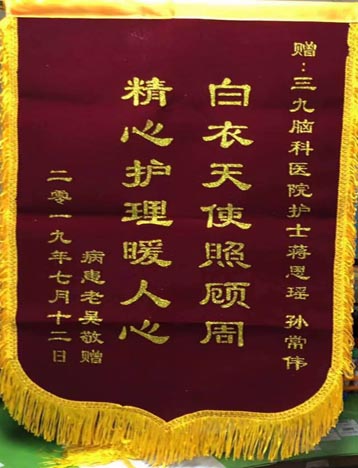 赠：三九脑科医院护士蒋恩瑶 孙常伟
白衣天使照顾周
精心护理暖人心
病患老吴敬赠
二零一九年七月十二日